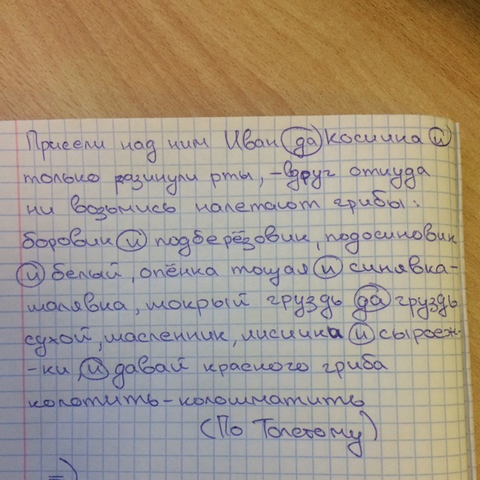 Присели над ним Иван да Косичка и
только разинули рты, - вдруг откуда
ни возьмись налетают грибы:
боровик и подберёзовик, подосиновик
и белый, опёнка тощая и синявка-
малявка, мокрый груздь да груздь
сухой, масленник, лисичка и сыроеж-
-ки и давай красного гриба
колотить-колошматить
(По Толстому)
=)